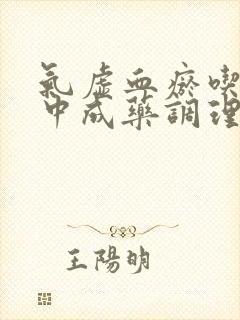 氣虛血瘀喫
中成藥調理
王陽明